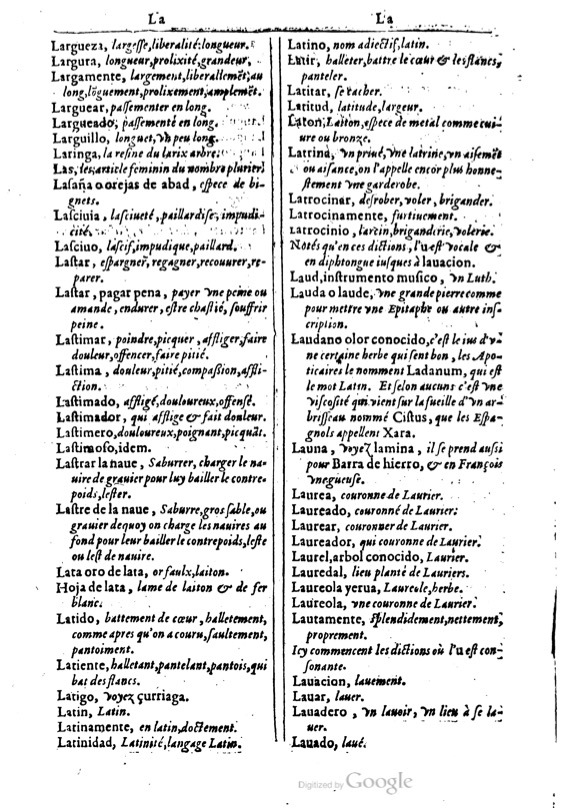 La
La
Largueza, largesse, liberalité: longueur.
Largura, longueur, prolixité, grandeur.
Largamente, largement, liberallemēt; au
long, lōguement, prolixement; amplemēt.
Larguear, passementer en long.
Largueado, passementé en long.
Larguillo, longuet, vn peu long.
Laringa, la resine du larix arbre.
Las, les, article feminin du nombre plurier.
Lasaña o orejas de abad, espece de bi-
gnets.
Lasciuia, lasciueté, paillardise, impudi-
cité.
Lasciuo, lascif, impudique, paillard.
Lastar, espargner, regagner, recouurer, re-
parer.
Lastar, pagar pena, payer vne peine ou
amande, endurer, estre chastié, souffrir
peine.
Lastimar, poindre, picquer, affliger, faire
douleur, offencer, faire pitié.
Lastima, douleur, pitié, compassion, affli-
ction.
Lastimado, affligé, douloureux, offensé.
Lastimador, qui afflige & fait douleur.
Lastimero, douloureux, poignant, picquāt.
Lastimoso, idem.
Lastrar la naue, Saburrer, charger le na-
uire de grauier pour luy bailler le contre-
poids, lester.
Lastre de la naue, Saburre, gros sable, ou
grauier dequoy on charge les nauires au
fond pour leur bailler le contrepoids, leste
ou lest de nauire.
Lata oro de lata, or faulx, laiton.
Hoja de lata, lame de laiton & de fer
blanc.
Latido, battement de cœur, halletement,
comme apres qu'on a couru, saultement,
pantoiment.
Latiente, halletant, pantelant, pantois, qui
bat des flancs.
Latigo, voyez çurriaga.
Latin, Latin.
Latinamente, en latin, doctement.
Latinidad, Latinité, langage Latin.
Latino, nom adiectif, latin.
halleter, battre le cœur & les flancs,
panteler.
Latitar, se cacher.
Latitud, latitude, largeur.
Laton, Laiton, espece de metal comme cui-
ure ou bronze.
Latrina, vn priué, vne latrine, vn aisemēt
ou aisance, on l'appelle encor plus honne-
stement vne garderobe.
Latrocinar, desrober, voler, brigander.
Latrocinamente, furtiuement.
Latrocinio, larcin, briganderie, volerie.
Notés qu'en ces dictions, l'u est vocale &
en diphtongue iusques à lauacion.
Laud, instrumento musico, vn Luth.
Lauda o laude, vne grande pierre comme
pour mettre vne Epitaphe ou autre ins-
cription.
Laudano olor conocido, c'est le ius d'v-
ne certaine herbe qui sent bon, les Apo-
ticaires le nomment Ladanum, qui est
le mot Latin. Et selon aucuns c'est vne
viscosité qui vient sur la fueille d'vn ar-
brisseau nommé Cistus, que les Espa-
gnols appellent Xara.
Launa, voyez lamina, il se prend aussi
pour Barra de hierro, & en François
vnegueuse.
Laurea, couronne de Laurier.
Laureado, couronné de Laurier.
Laurear, couronner de Laurier.
Laureador, qui couronne de Laurier.
Laurel, arbol conocido, Laurier.
Lauredal, lieu planté de Lauriers.
Laureola yerua, Laureole, herbe.
Laureola, vne couronne de Laurier.
Lautamente, splendidement, nettement,
proprement.
Icy commencent les dictions où l'u est con-
sonante.
Lauacion, lauement.
Lauar, lauer.
Lauadero, vn lauoir, vn lieu à se la-
uer.
Lauado, laué.
Digitized by Google